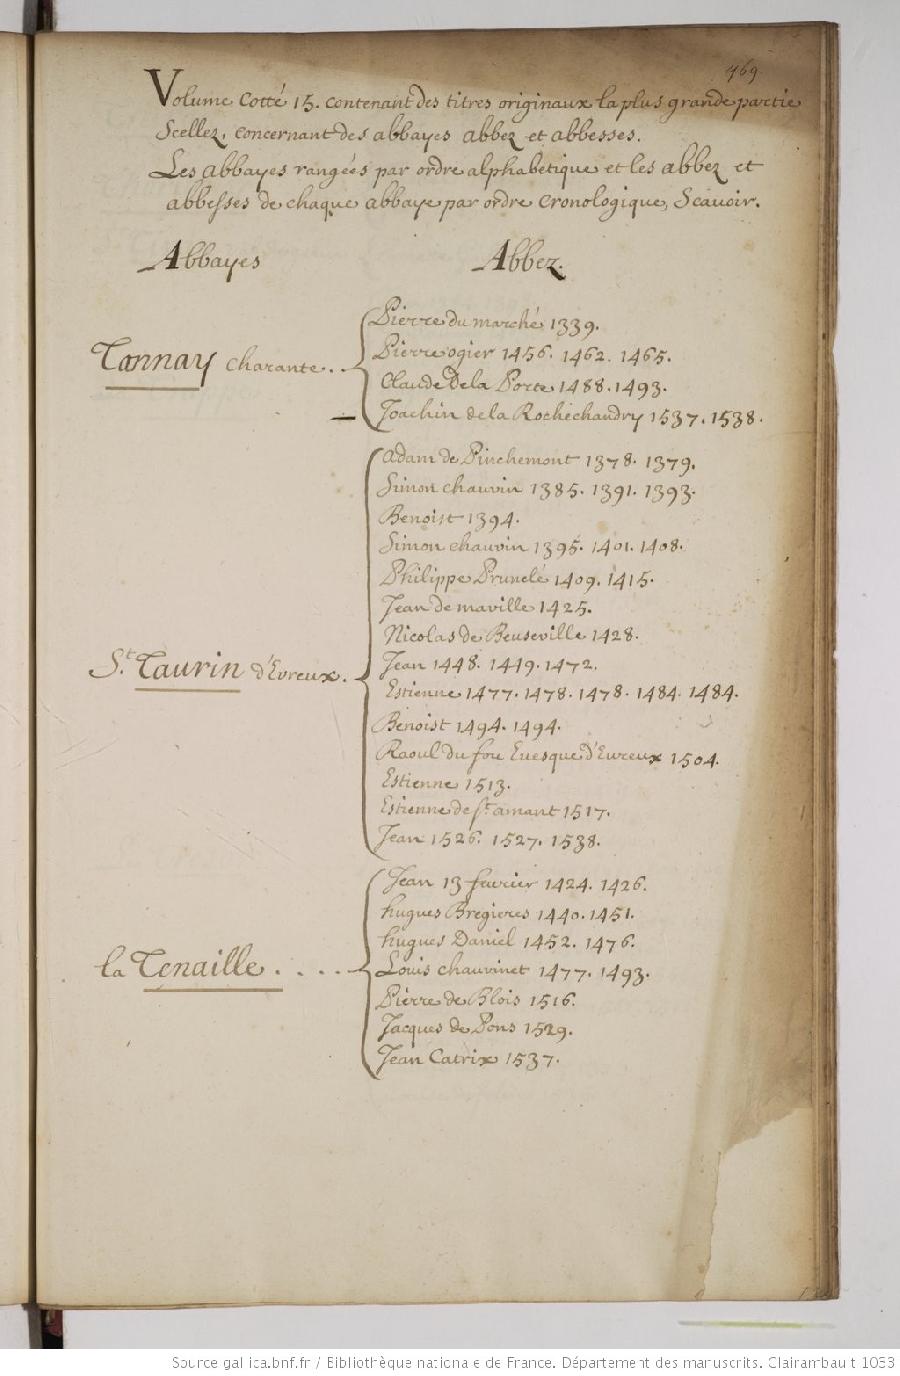 469
Volume Cotté 15. contenant des titres originaux la plus grande partie
Scellez, concernant des abbayes abbez et abbesses.
Les abbayes rangées par ordre alphabetique et les abbez et
abbesses de chaque abbaye par ordre Cronologique, Scauoir.
Abbayes Abbez.
Tonnay charante..
Pierre du marché 1339.
Pierre ogier 1456. 1462. 1465.
Claude De la Porte 1488. 1493.
Joachin de la Rochechandry 1537. 1538.
St. Taurin d'Evreux.
Adam de Pinchemont 1378. 1379.
Simon chauvin 1385. 1391. 1393.
Benoist 1394.
Simon chauvin 1395. 1401. 1408.
Philippe Prunelé 1409. 1415.
Jean de maville 1425.
Nicolas de Beuseville 1428.
Jean 1448. 1449. 1472.
Estienne 1477. 1478. 1478. 1484. 1484.
Benoist 1494. 1494.
Raoul du fou Euesque d'Eureux 1504.
Estienne 1513.
Estienne de st. amant 1517.
Jean 1526. 1527. 1538.
la Tenaille....
Jean 13 feurier 1424. 1426.
hugues Bregieres 1440. 1451.
hugues Daniel 1452. 1476.
Louis chauvinet 1477. 1493.
Pierre de Blois 1516.
Jacques de Pons 1529.
Jean Catrix 1537.
Source gallica.bnf.fr / Bibliothèque nationale de France. Département des manuscrits. Clairambault 1033